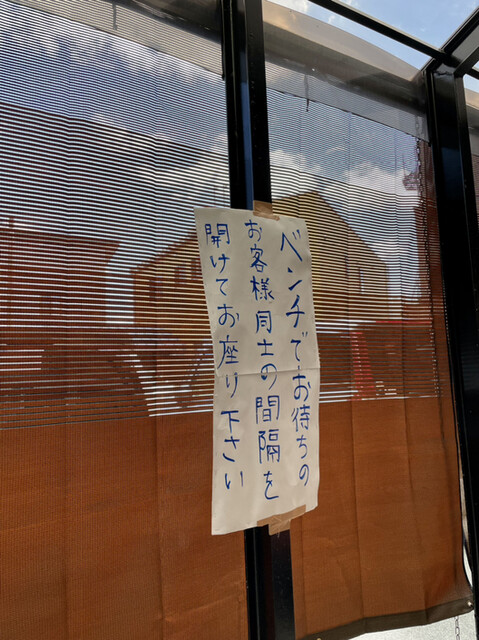 ベンチでお待ちの
お客様同士の間隔を
開けてお座り下さい